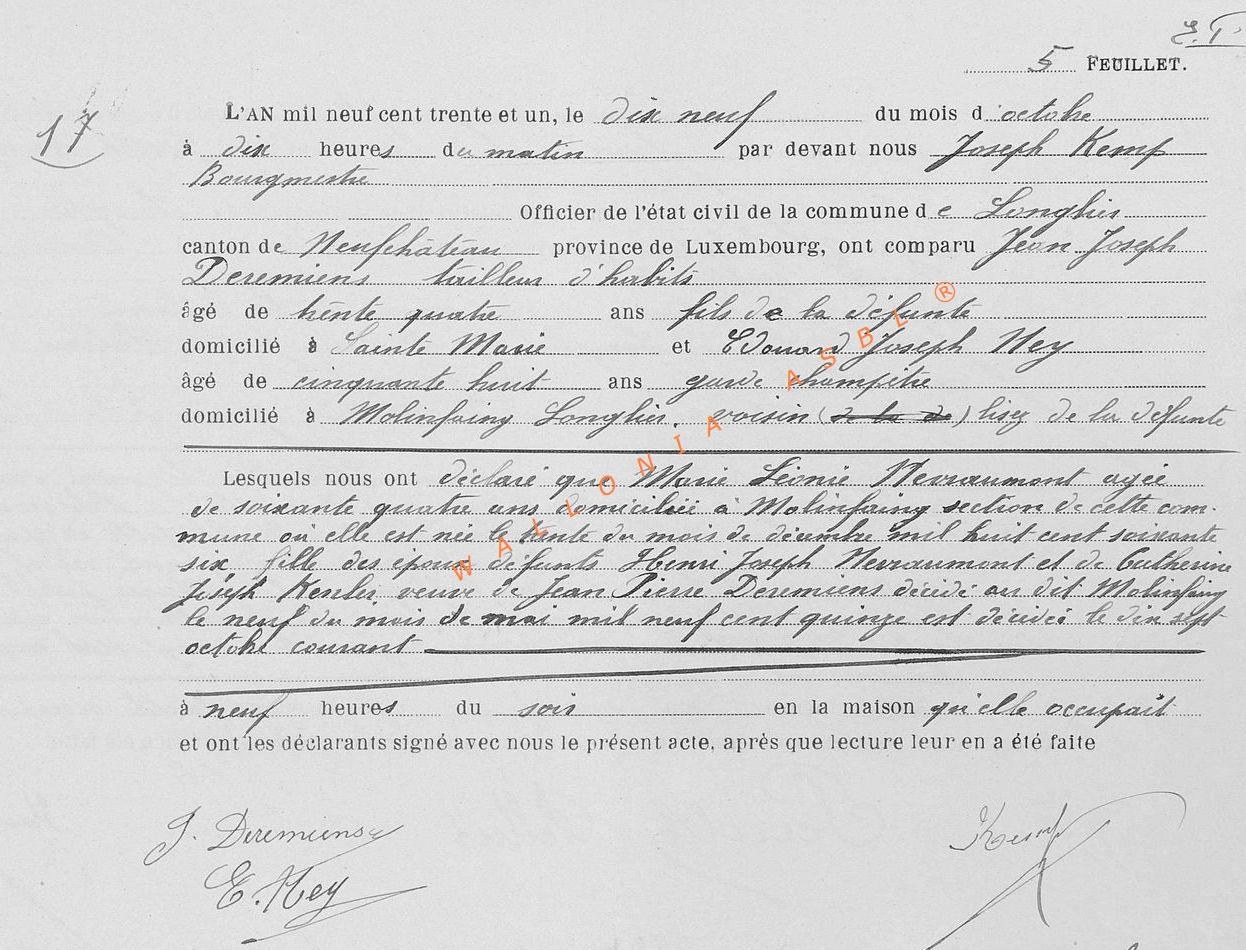 5 FEUILLET.
17
L'AN mil neuf cent trente et un, le dix neuf du mois d'octobre
à dix heures du matin par devant nous Joseph Kemp
Bourgmestre
Officier de l'état civil de la commune de Longlier
canton de Neufchâteau province de Luxembourg, ont comparu Jean Joseph
Deremiens tailleur d'habits
âgé de trente quatre ans fils de la défunte
domicilié à Sainte Marie et Edouard Joseph Hey
âgé de cinquante huit ans garde champêtre
domicilié à Molinfaing Longlier, voisin (de la de) lisez de la défunte
Lesquels nous ont déclaré que Marie Léonie Nevraumont agée
de soixante quatre ans domiciliée à Molinfaing section de cette com-
mune où elle est née le trente du mois de décembre mil huit cent soixante
six fille des époux défunts Henri Joseph Nevraumont et de Catherine
Joseph veuve de Jean Pierre Deremiens décédé au dit Molinfaing
le neuf du mois de mai mil neuf cent quinze est décédée le dix sept
octobre courant
à neuf heures du soir en la maison qu'elle occupait
et ont les déclarants signé avec nous le présent acte, après que lecture leur en a été faite
J. Deremiens
E. Hey
Kemp
WALLONIA ASBL ®